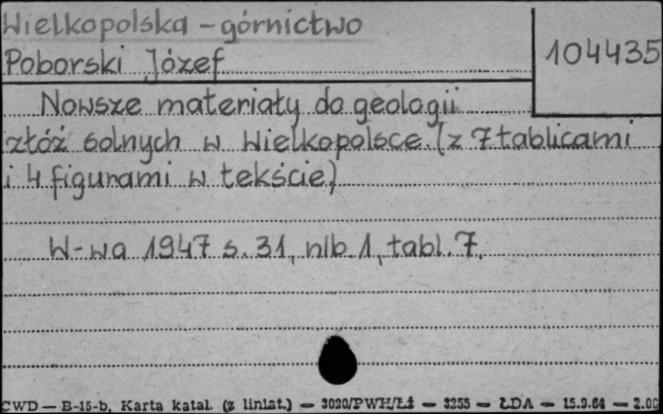 Wielkopolska - górnictwo
104435
Poborski Józef
Nowsze materiały do geologii
złóż solnych w Wielkopolsce. (z 7 tablicami
i 4 figurami w tekście)
W-wa 1947 s. 31, nlb. 1, tabl. 7.
CWD — B-15-b, Karta katal. (z liniat.) — 3020/PWH/Łż — 3255 — ŁDA — 15.9.64 — 2.00